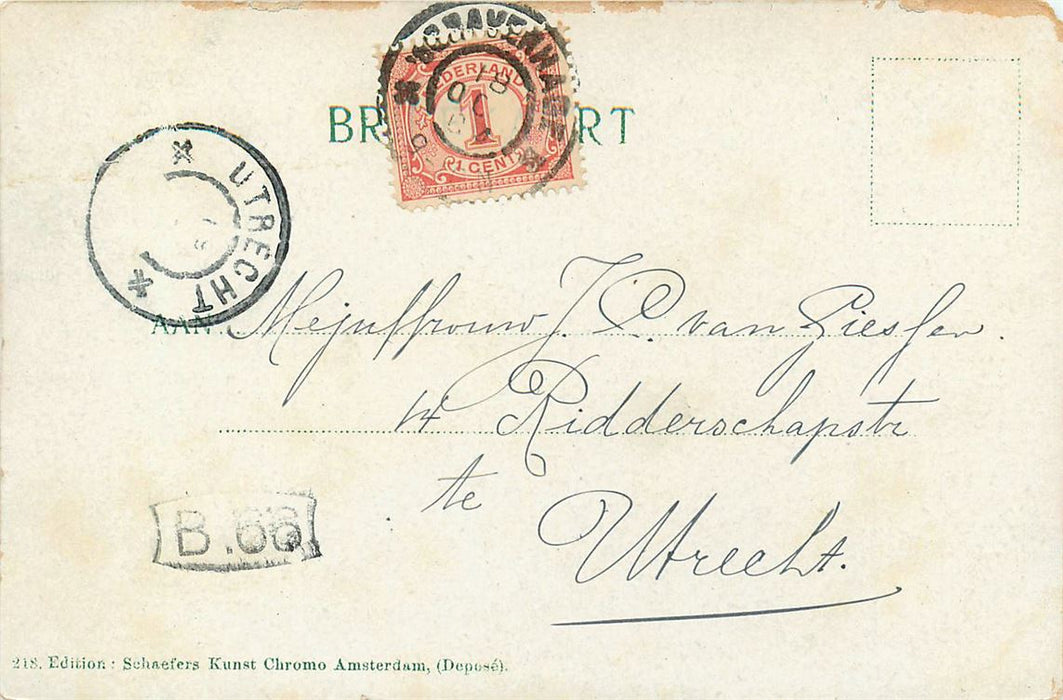 'S GRAVENHAGE
NEDERLAND
1
1 CENT
BR RT
UTRECHT
AAN Mejuffrouw J. C. van Giessen
14 Ridderschapstr
te
Utrecht.
B.66
218. Edition : Schaefers Kunst Chromo Amsterdam, (Deposé).